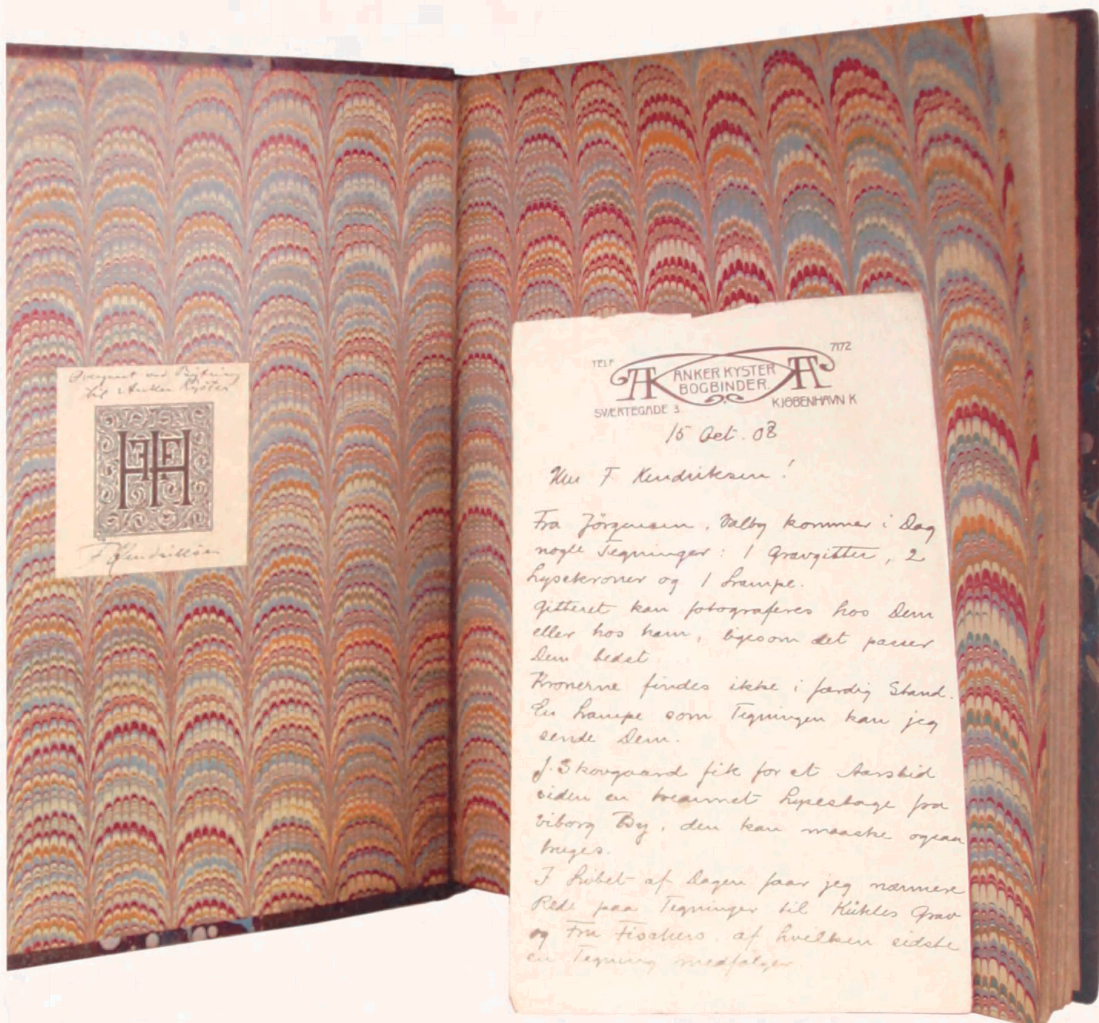 til Anker Kyster
FH
F. Hendriksen
TELF. 7172
AK ANKER KYSTER AK
BOGBINDER.
SVÆRTEGADE 3. KJØBENHAVN K
15 Oct. 08
Herr F. Hendriksen!
Fra Jörgensen, Valby kommer i Dag
nogle Tegninger: 1 Gravgitter, 2
Lysekroner og 1 Lampe.
Gitteret kan fotograferes hos Dem
eller hos ham, ligesom det passer
Dem bedst
Kronerne findes ikke i færdig Stand.
En Lampe som Tegningen kan jeg
sende Dem.
J. Skovgaard fik for et Aarstid
siden en trearmet Lysestage fra
Viborg By, den kan maaske ogsaa
bruges.
I Løbet af Dagen faar jeg nærmere
Rede paa Tegninger til Grav
og Fru Fischers, af hvilken sidste
en Tegning medfølger